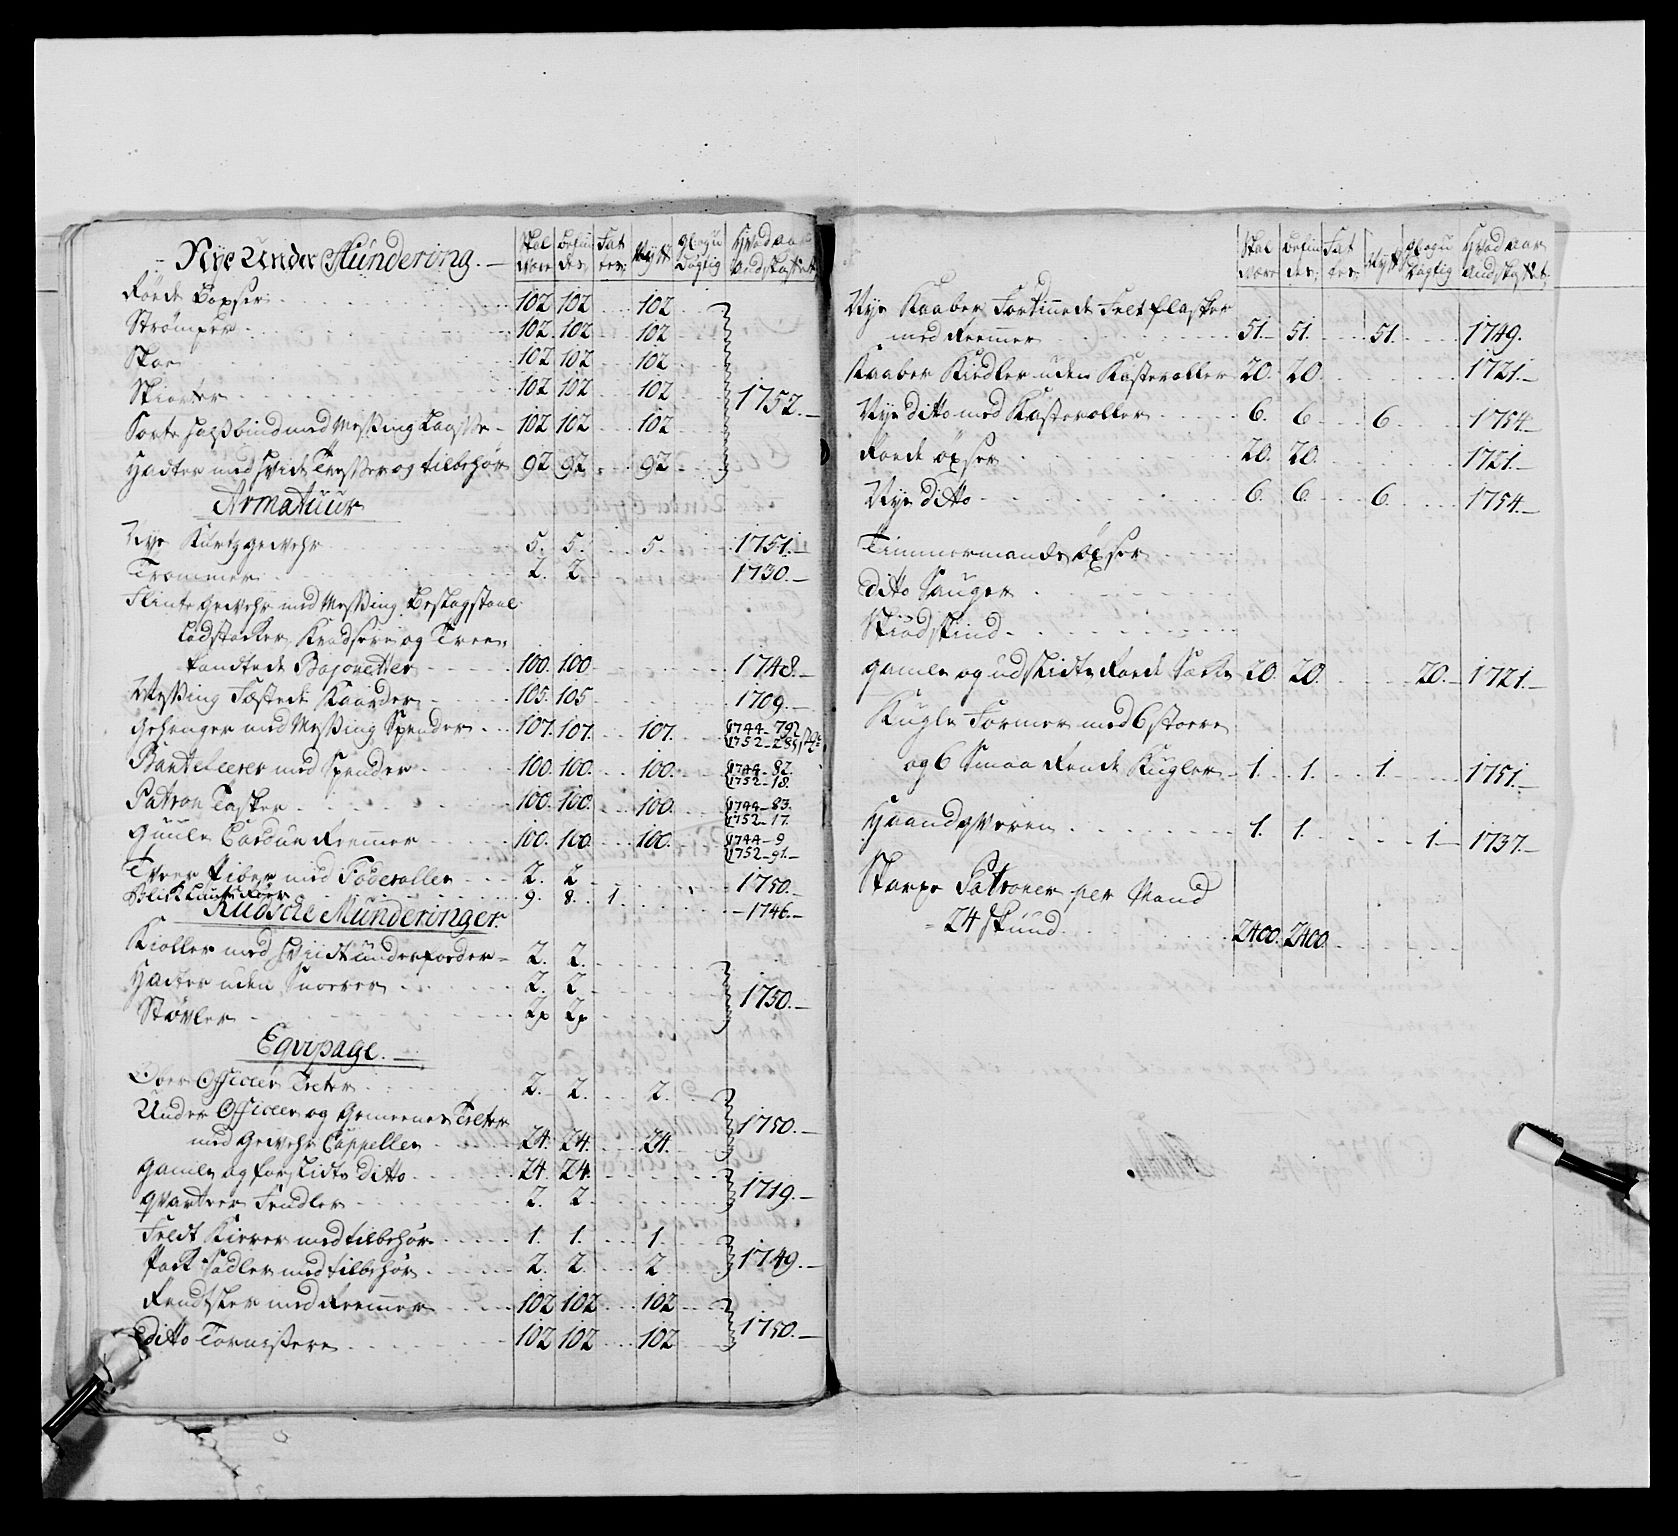 Nye Under Munderiing. Skal være Befindes Fattes Nytt Ubeqv Dögtig Hvad aar Andskaffet
Röede Boxser 102. 102. 102.
Strömper 102. 102. 102
Skoe 102. 102. 102
Skiorter 102. 102. 102 1752.
Sorte Halsbind med Messing Laasse 102 102 102
Hatter med Hvide Tresser og tilbehör 92. 92 92
Armatuur
Nye Kurtz gewehr 5. 5. 5. 1751.
Trommer 2. 2 1730.
Flinte Gewehr med Messing Beslag staal
Ladstocker, Kradsere og Tree
kandtede Bajonetter 100. 100. 1748.
Messing Fæstede Kaarder 105. 105 1709.
Gehenger med Messing Spender 107. 107. 107. 1744 - 79 1752 - 28
Bantelerer med Spender 100. 100. 100. 1744 - 82. 1752 - 18.
Patron Tasker 100. 100. 100. 1744 - 83. 1752 - 17.
Guule Carduu Remmer 100. 100. 100. 1744 - 9 1752 - 91.
Tveer Piber med Foderaller 2. 2 1750.
Blick Lunte Röer 9. 8. 1. 1746.
Kudsche Munderinger.
Kioller med Hviidt underfoeder 2. 2.
Hatter uden Snoerer 2. 2. 1750.
Stövler 2p 2p
Eqvipage.
Ober Officeer Telter 2. 2. 2.
Under Officeer og Gemeenes Telter 1750.
med Gewehr Cappeller 24. 24. 24.
Gamle og forslidte ditto 24. 24.
Qvarteer Fendler 2. 2. 1719.
Feldt Kierer med tilbehör 1. 1. 1.
Pack Sadler med tilbehör 2. 2. 2 1749.
Rendsler med Remmer 102 102 102
Ditto Tornistere 102 102 102 1750.
Skal være Befindes Fattes Nytt Ubeqv Dögtig Hvad aar Andskaffet
Nye Kaaber Fortinnede Felt flasker
med Remmer 51. 51. 51. 1749.
Kaaber Kiedler uden Kasteroller 20. 20. 1721.
Nye Ditto med Kasteroller 6. 6 6 1754
Roede öxser 20. 20. 1721.
Nye ditto 6. 6. 6. 1754.
Timmermands öxser
Ditto Sauger
Skiödskind
Gamle og udslidte Roede 20. 20. 20. 1721.
Kugle Former med 6 stoere
og 6 Smaa Rende Kugler 1. 1. 1. 1751.
Haandqveren 1. 1. 1 1737.
Skarpe Patroner per Mand
24 skund 2400. 2400.